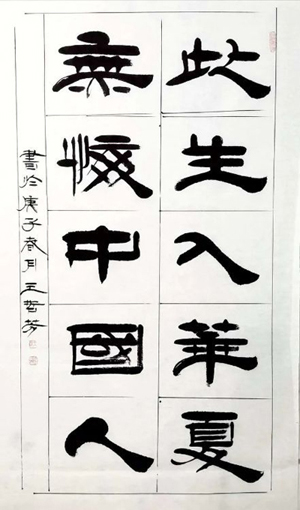 此生入華夏
無悔中國人
書於庚子春月王哲芳